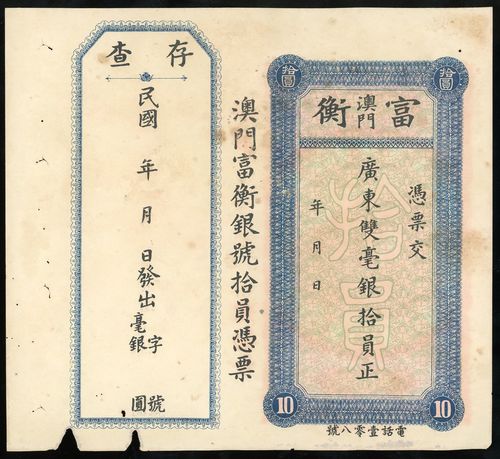 拾圓
拾圓
富澳門衡
憑票交
廣東雙毫銀拾員正
年月日
拾員
10
10
電話壹零八號
澳門富衡銀號拾員憑票
存查
民國 年 月 日發出
字 號
毫銀 圓